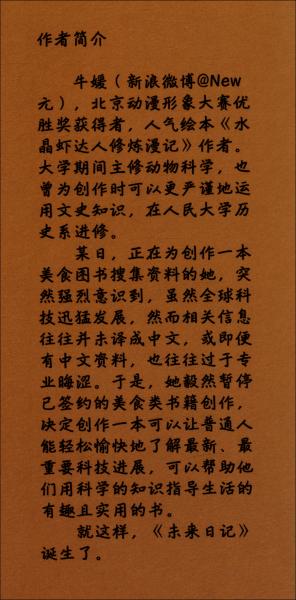 作者简介
牛媛（新浪微博@New
元），北京动漫形象大赛优
胜奖获得者，人气绘本《水
晶虾达人修炼漫记》作者。
大学期间主修动物科学，也
曾为创作时可以更严谨地运
用文史知识，在人民大学历
史系进修。
某日，正在为创作一本
美食图书搜集资料的她，突
然强烈意识到，虽然全球科
技迅猛发展，然而相关信息
往往并未译成中文，或即便
有中文资料，也往往过于专
业晦涩。于是，她毅然暂停
已签约的美食类书籍创作，
决定创作一本可以让普通人
能轻松愉快地了解最新、最
重要科技进展，可以帮助他
们用科学的知识指导生活的
有趣且实用的书。
就这样，《未来日记》
诞生了。